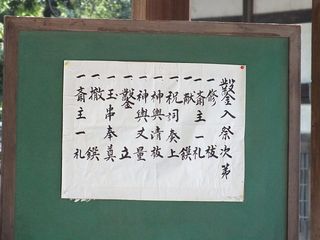 鑿入祭次第
一修祓
一斎主一礼
一献饌
一祝詞奏上
一神輿清祓
一神輿丈量
一鑿立
一玉串奉奠
一撤饌
一斎主一礼